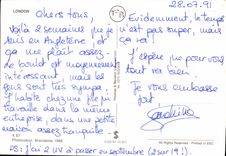 LONDON
28.07.91
Chers tous,
Voilà 2 semaines que je
suis en Angleterre et
ça me plaît assez,
de boulot est moyennement
intéressant mais les
gens sont très sympa.
J'habite chez une fille qui
travaille dans la même
entreprise, dans une petite
maison assez tranquille.
Evidemment, le temps
n'est pas super, mais
ça va!
J'espère que pour vous
tout va bien.
Je vous embrasse
fort
PS: J'ai 2 UV à passer en septembre (2 sur 19!).